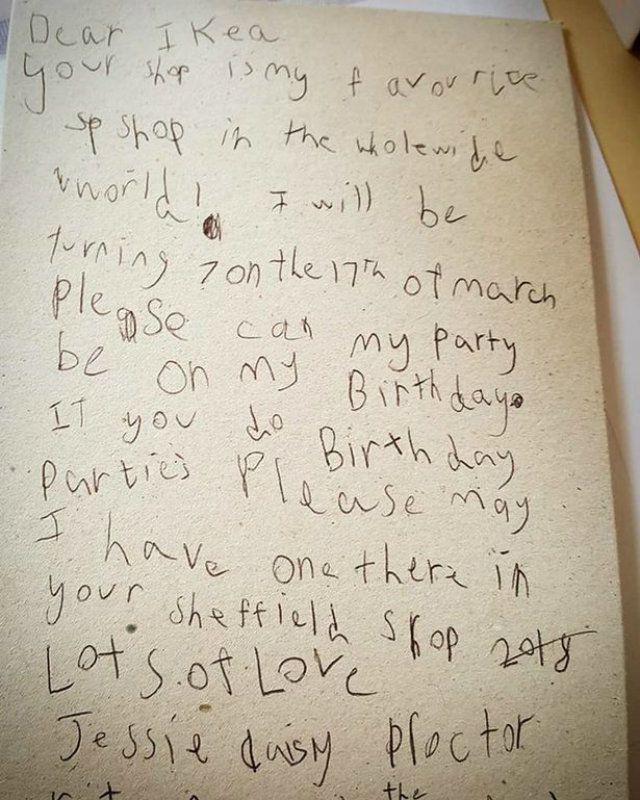 Dear IKea
your shop is my favourite
sp shop in the wholewide
world! I will be
turning 7 on the 17th of march
Please can my party
be on my Birthday.
If you do Birthday
Parties Please may
I have one there in
your sheffield shop 2018
Lots.of.Love
Jessie daisy Ploctor
the